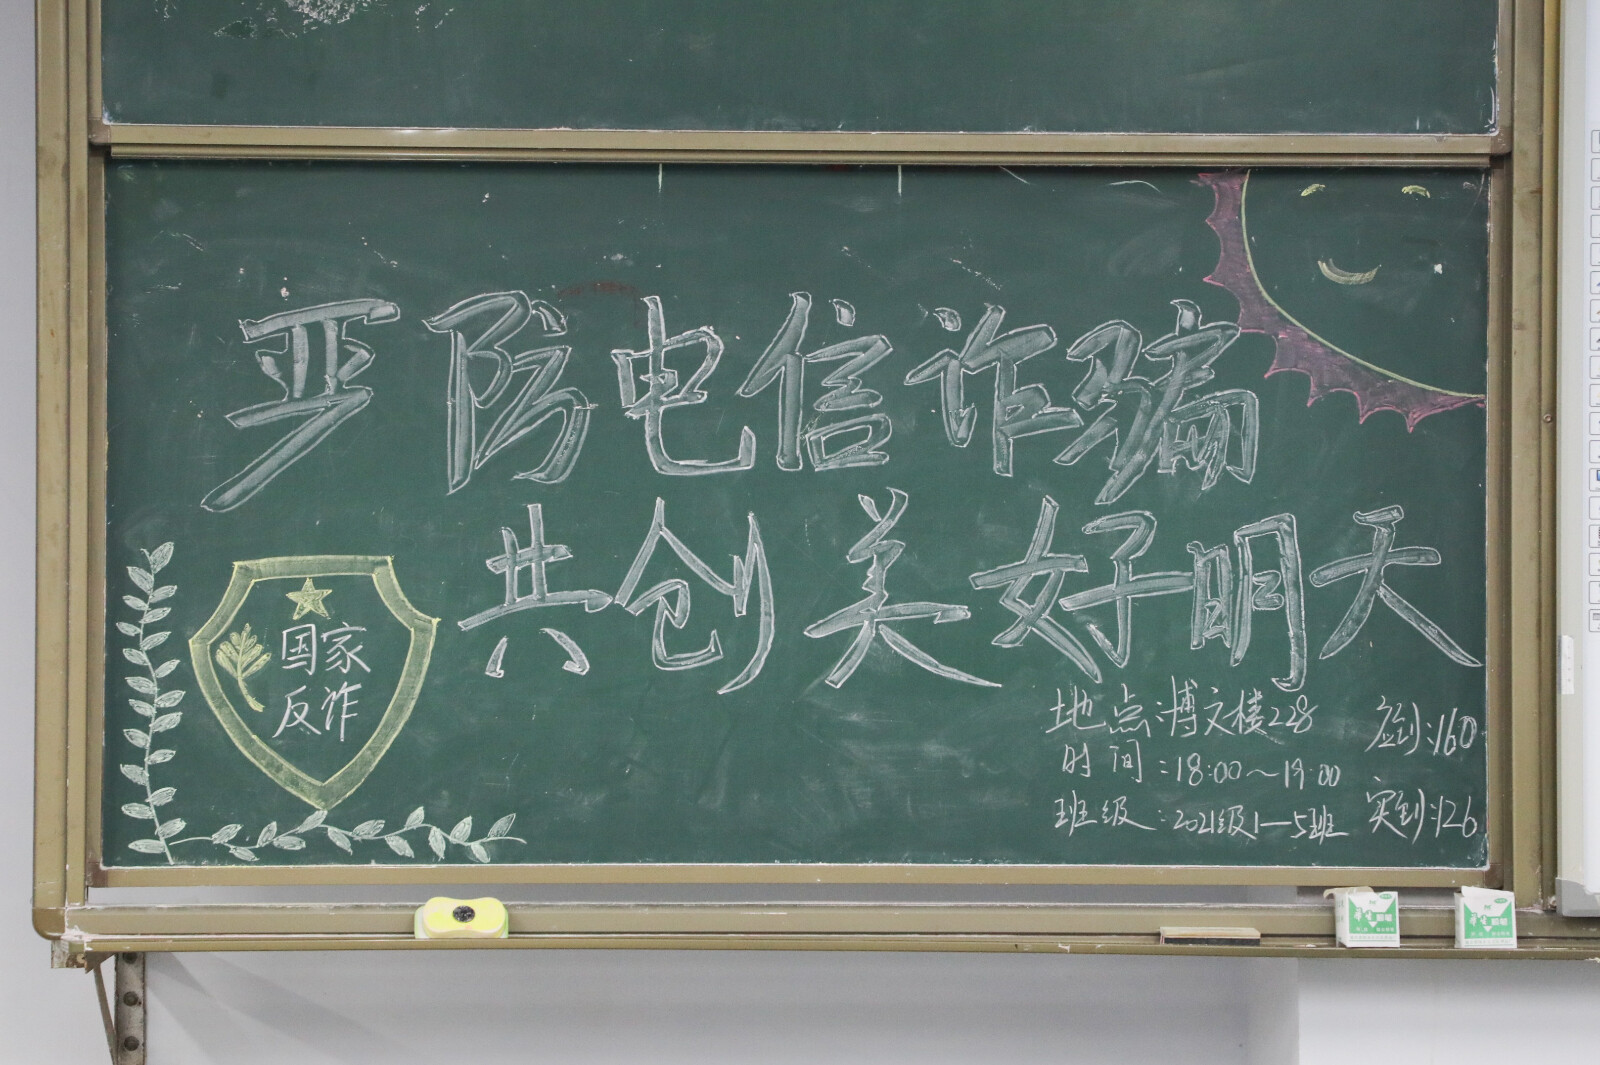 严防电信诈骗
共创美好明天
国家
反诈
地点:博文楼228
时间:18:00~19:00
班级:2021级1—5班
应到:160
实到:126